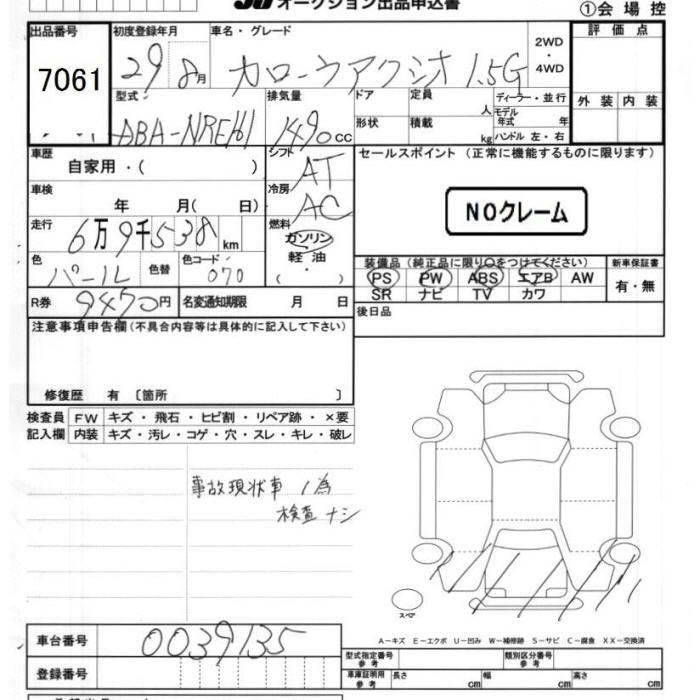 オークション出品申込書
①会場控
出品番号 初度登録年月 車名・グレード 評価点
7061 29 8月 カローラアクシオ 1.5G 2WD・4WD
型式 排気量 ドア 定員 人 ディーラー・並行 外装 内装
ABA-NRE161 1490cc 形状 積載 kg モデル年式 年
ハンドル 左・右
車歴 自家用・( ) シフト AT セールスポイント(正常に機能するものに限ります)
車検 年 月( 日) 冷房 AC NOクレーム
走行 6万9千538km 燃料 ガソリン・軽油・( )
色 パール 色替 色コード 070 装備品(純正品に限り○をつけてください) 新車保証書
PS PW ABS エアB AW 有・無
SR ナビ TV カワ
R券 9470円 名変通知期限 月 日 後日品
注意事項申告欄(不具合内容等は具体的に記入して下さい)
修復歴 有〔箇所 〕
検査員 FW キズ・飛石・ヒビ割・リペア跡・×要
記入欄 内装 キズ・汚レ・コゲ・穴・スレ・キレ・破レ
事故現状車ノ為
検査ナシ
スペア
A-キズ E-エクボ U-凹み W-補修跡 S-サビ C-腐食 XX-交換済
車台番号 0039135 型式指定番号 参考 類別区分番号 参考
登録番号 車庫証明用 参考 長さ cm 幅 cm 高さ cm